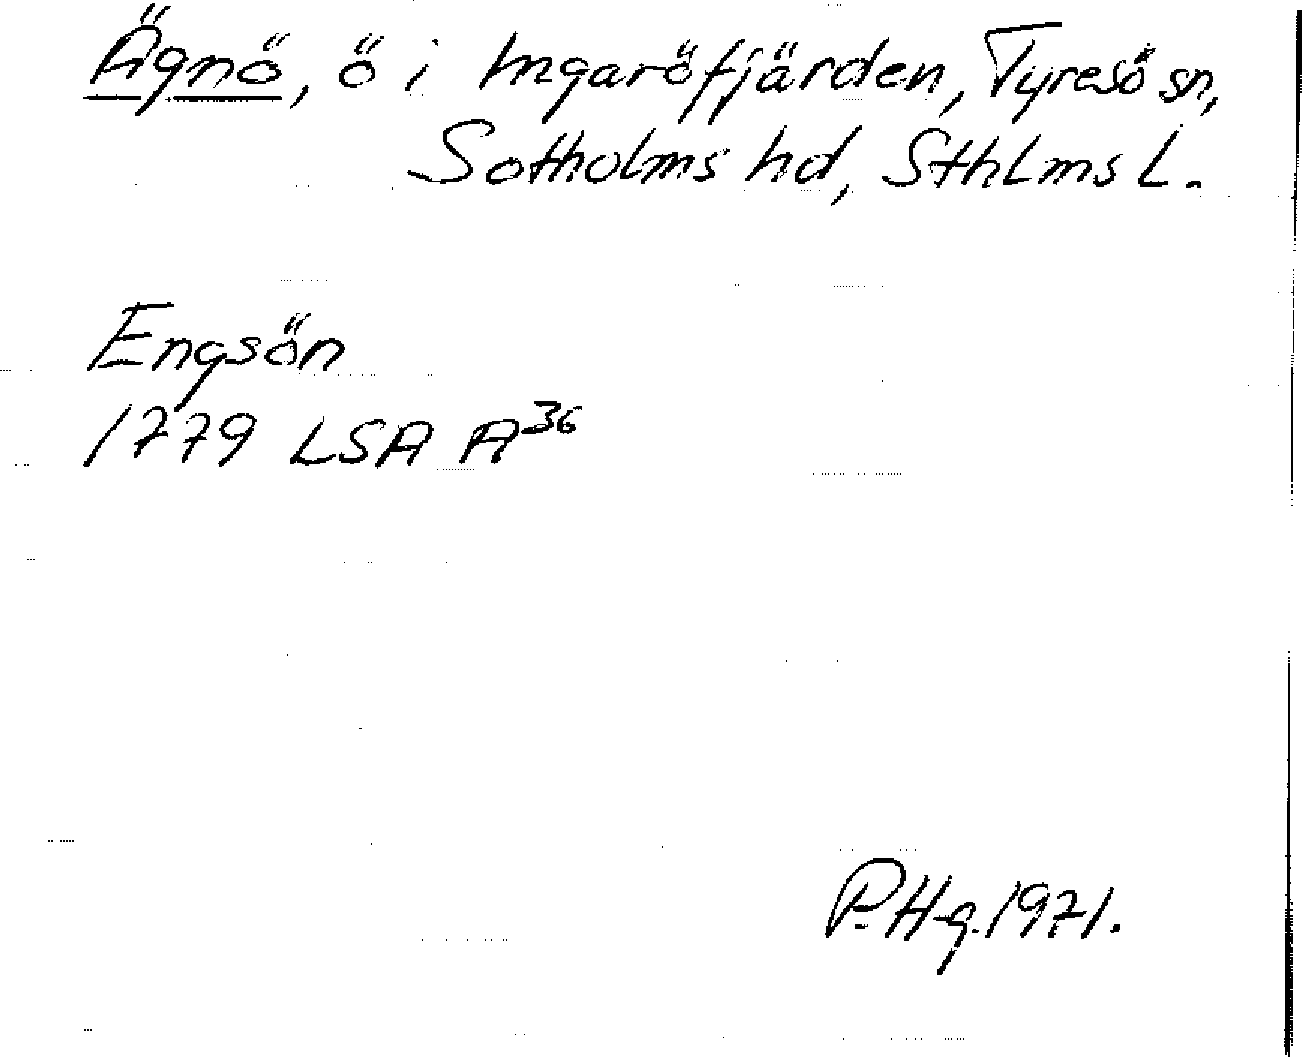 Ägnö, ö i Ingaröfjärden, Tyresö sn,
Sotholms hd, Sthlms l.
Engsön
1779 LSA A36
P. Hg. 1971.